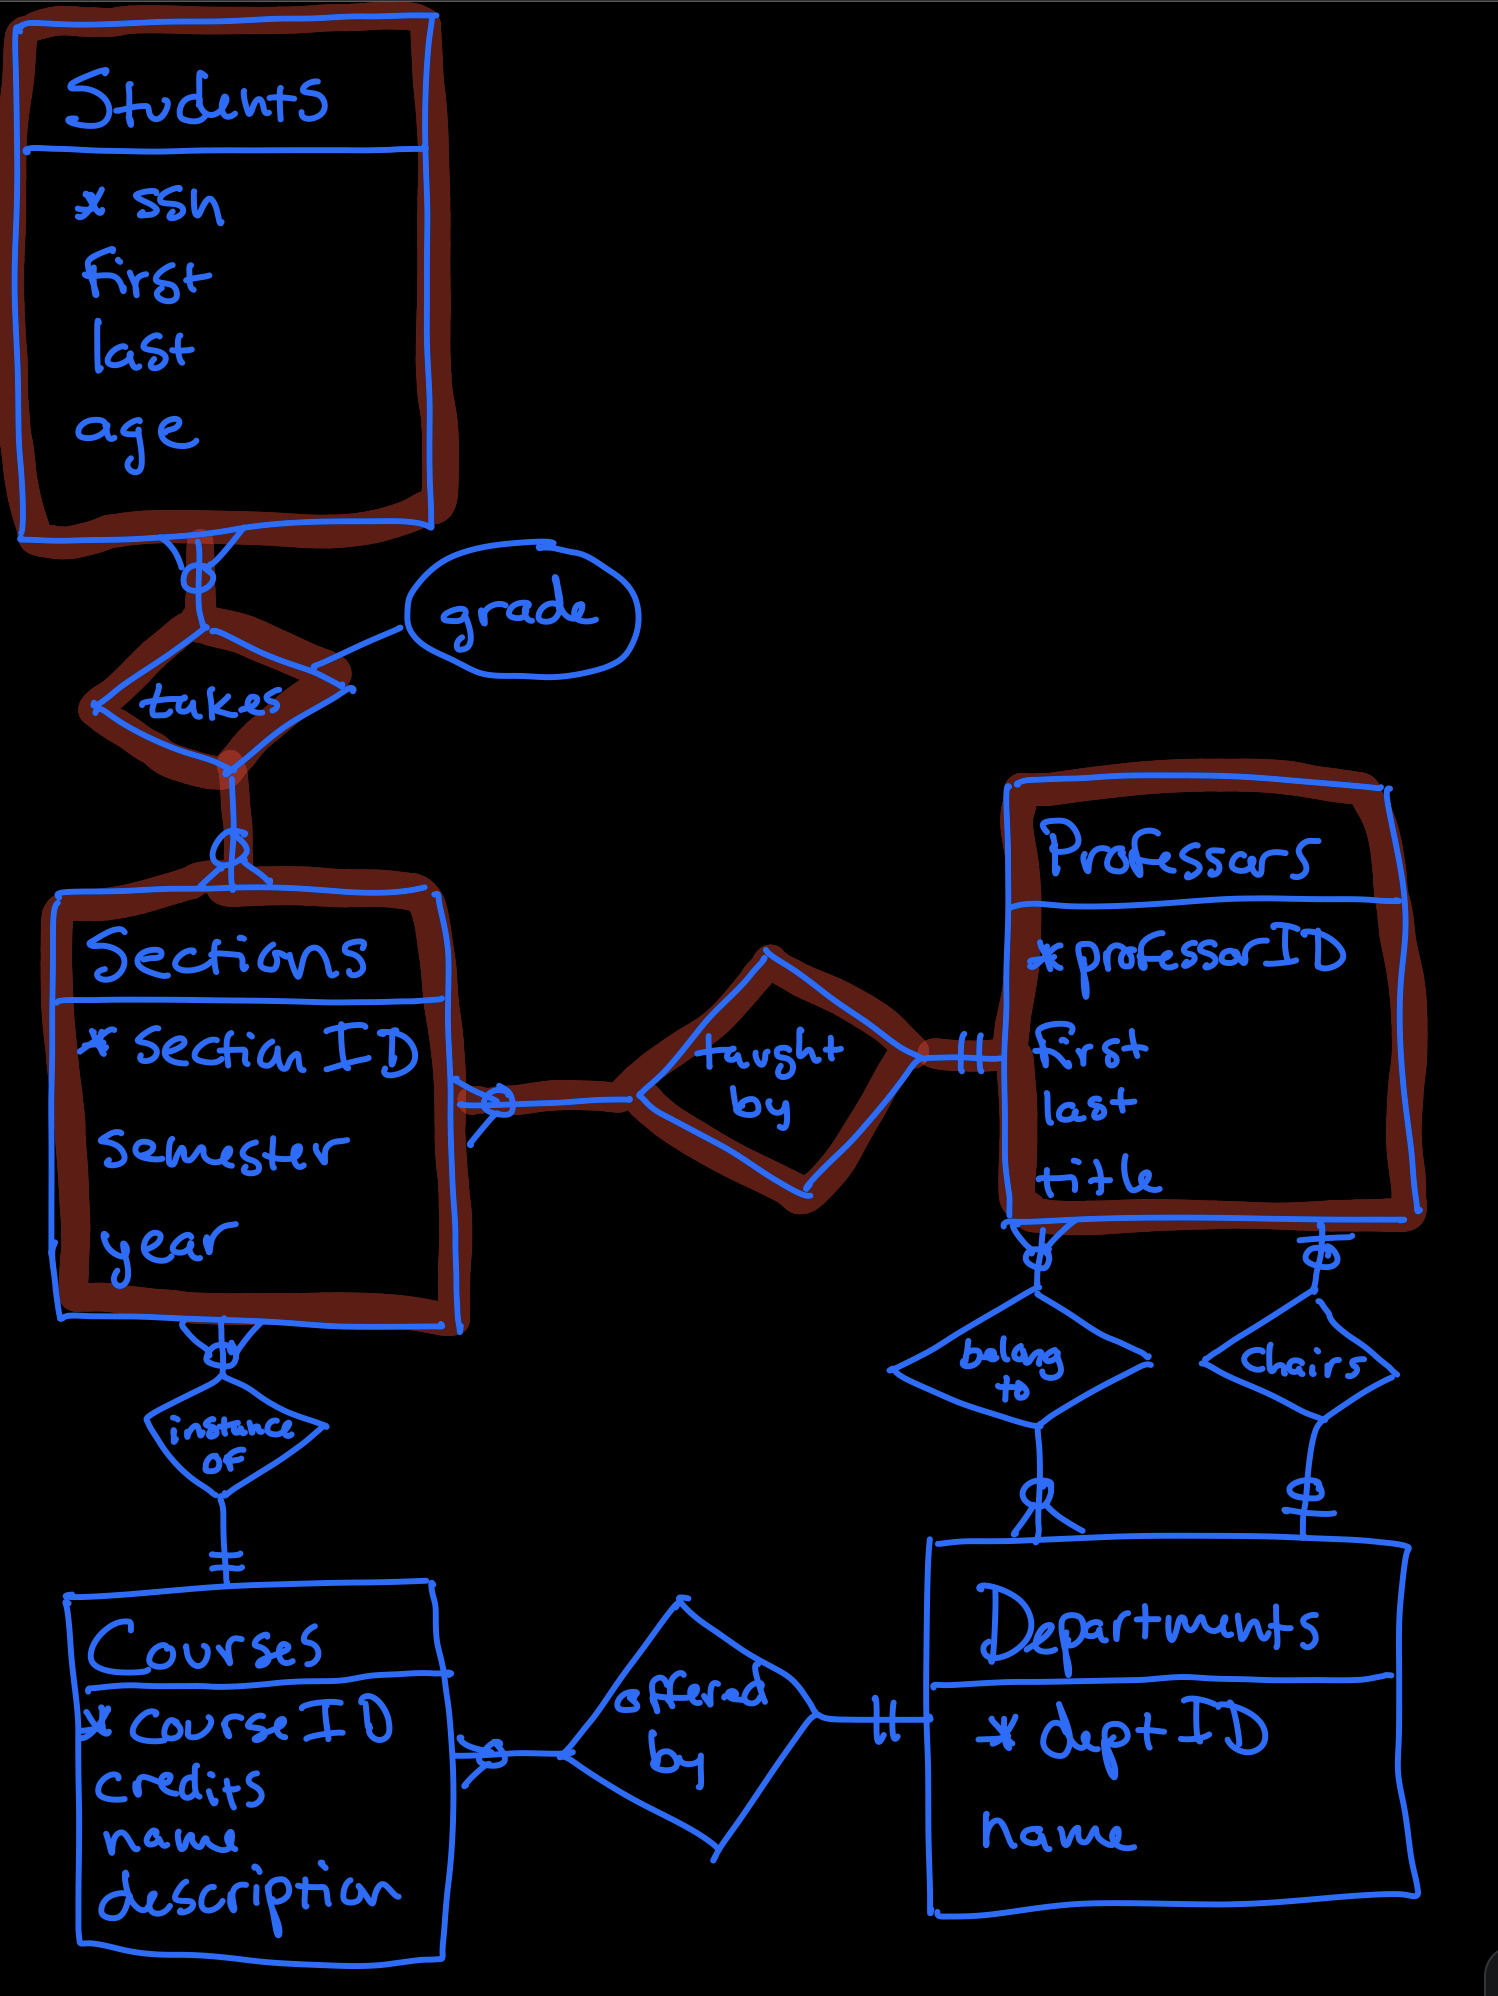 Students
* ssn
first
last
age
grade
takes
Sections
* section ID
semester
year
taught
by
Professors
* professor ID
first
last
title
instance
of
belong
to
Chairs
Courses
* course ID
credits
name
description
offered
by
Departments
* dept ID
name